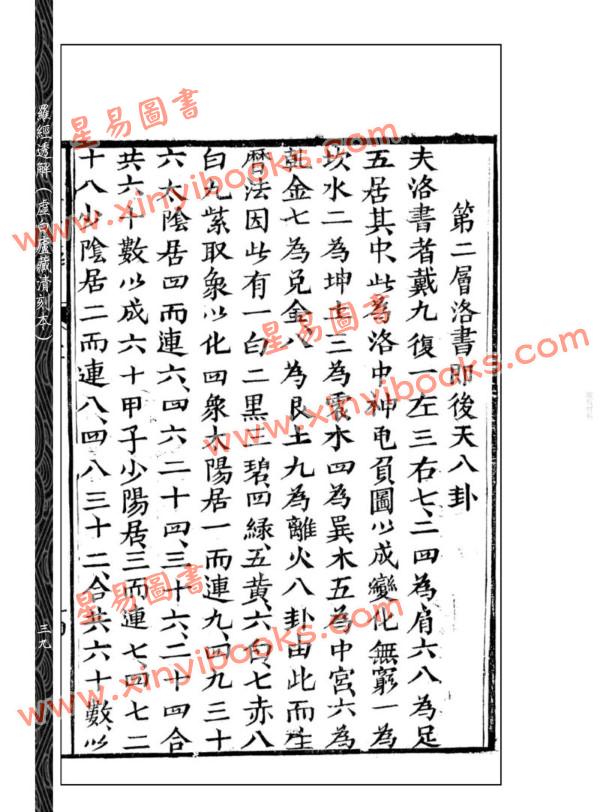 第二層洛書即後天八卦
夫洛書者戴九復一左三右七、二四為肩六八為足
五居其中、此為洛中神龟負圖以成變化無窮一為
坎水二為坤土三為震木四為巽木五為中宮、六為
乾金七為兌金八為艮土九為離火八卦由此而生
曆法因此有一白二黑三碧、四綠、五黃、六白、七赤八
白九紫取象以化四象太陽居一而連九、四九三十
六太陰居四而連六、四六二十四、三十六、二十四合
共六十數以成六十甲子少陽居、三而連七、四七二
十八少陰居二而連八、四八三十二、合共六十數、以
羅經透解（虛白廬藏清刻本）
三九
星易圖書
www.xinyibooks.com
星易圖書
www.xinyibooks.com
星易圖書
www.xinyibooks.com